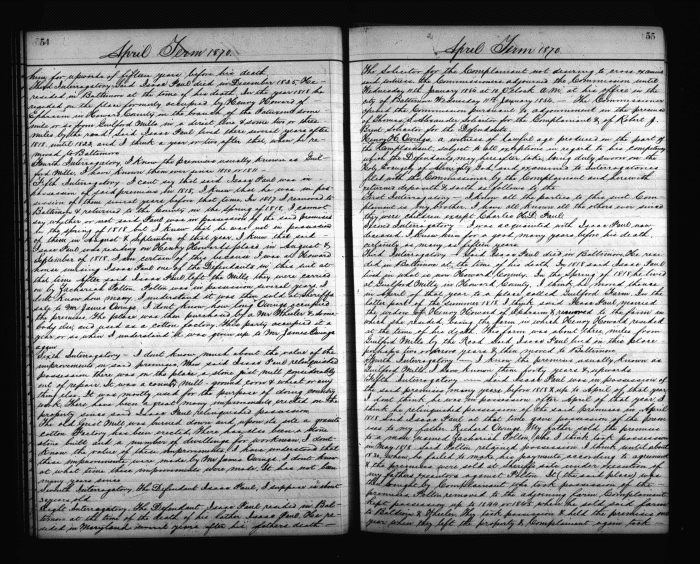 54
April Term 1870.
him for upwards of fifteen years before his death
Third Interrogatory. Said Isaac Paul died in December 1835. He re-
sided in Baltimore at the time of his death. In the year 1818 he
resided on the place formerly occupied by Henry Howard of
Ephraim in Howard County on the branch of the Patuxent some
mile or so from Guilford Mills, on a direct line & some two or three
miles by the road. Said Isaac Paul lived there several years after
1818, until 1822 and I think a year or two after this, when he re-
moved to Baltimore
Fourth Interrogatory, I know the premises usually known as Guil-
ford Mills. I have known them ever since 1810 or 1811
Fifth Interrogatory, I cant say that said Isaac Paul was in
possession of said premises in 1818. I know that he was in pos-
session of them several years before that time. In 1817 I removed to
Baltimore & returned to the County in the spring of 1818. I cannot
say whether or not said Paul was in possession of the said premises
in the spring of 1818 but I know that he was not in possession
of them in August & September of that year. I know that said
Isaac Paul was residing on Henry Howards place in August &
September of 1818. I am certain of this because I was at Howards
house nursing Isaac Paul one of the Defendants in this suit at
that time. After said Isaac Paul left the Mills they were carried
on by Zachariah Polton. Polton was in possession several years. I
dont know how many. I understood it was then sold at sheriffs
sale to Mr James Owings. I dont know how long Owings occupied
the premises. The place was then purchased by a Mr Wheeler & some
body else and used as a cotton factory. This party occupied it a
year or so when I understood it was given up to Mr James Owings
again
Sixth Interrogatory - I dont know much about the value of the
improvements on said premises. When said Isaac Paul relinquished
possession there was on the place a stone grist mill considerably
out of repair. It was a county mill - ground corn & wheat or any
thing else. It was mostly used for the purpose of doing country
work. There has been a great many improvements erected on the
property since said Isaac Paul relinquished possession
The old Grist Mill was burned down and upon its site a granite
cotton Factory has been erected. There has also been a stone
store built and a number of dwellings for workmen. I dont
know the value of these improvements. I have understood that
these improvements were made by Mr James Owings. I dont know
at what time these improvements were made. It has not been
many years since
Seventh Interrogatory, The Defendant Isaac Paul, I suppose is about
years old
Eight Interrogatory. The Defendant Isaac Paul resided in Balt-
imore at the time of the death of his father Isaac Paul. He re-
sided in Maryland several years after his fathers death
55
April Term 1870.
The Solicitor for the Complainant not desiring to cross examine
said witness the Commissioners adjourned the Commission until
Wednesday 11th January 1854 at 10 Oclock A.M. at his office in the
city of Baltimore. Wednesday 11th January 1854. The Commissioner
opened the Commission pursuant to adjournment in the presence
of Thomas S Alexander Solicitor for the Complainant & of Robert J.
Brent Solicitor for the Defendants
Henry H. Owings, a witness of lawful age produced on the part of
the Complainant subject to all exceptions in regard to his competency
which the Defendants may hereafter take, being duly sworn on the
Holy Evangely of Almighty God, and examined to Interrogatories
filed with the Commissioner by the Complainant and herewith
returned deposeth & saith as follows to the
First Interrogatory. I know all the parties to this suit Com-
plainant is my Mother. I have known all the others ever since
they were children except Charles H. S. Paul.
Second Interrogatory - I was acquainted with Isaac Paul now
deceased. I knew him for a good many years before his death,
certainly as many as fifteen years
Third Interrogatory - Said Isaac Paul died in Baltimore. He resi-
ded in Baltimore at the time of his death. In 1818 said Isaac Paul
lived in what is now Howard County. In the Spring of 1818 he lived
at Guilford Mills in Howard County. I think he moved thence
in April of that year to a place called Guilford Farm. In the
latter part of the summer of 1818 I think said Isaac Paul married
the widow of Henry Howard of Ephraim & removed to the farm in
which she resided, being the farm on which Henry Howard resided
at the time of his death. This farm was about three miles from
Guilford Mills by the Road. Said Isaac Paul lived on this place
perhaps five or seven years & then moved to Baltimore
Fourth Interrogatory - I know the premises usually known as
Guilford Mills. I have known them forty years & upwards
Fifth Interrogatory - Said Isaac Paul was in possession of
the said premises many years before 1818 & up to April of that year
I dont think he was in possession after April of that year. I
think he relinquished possession of the said premises in April
1818. Said Isaac Paul at that time gave possession of the prem-
ises to my father Richard Owings. My father sold the premises
to a man named Zachariah Polton, who I think took possession
in May 1818. Said Polton retained possession I think until about
1820, when he failed to make his payments according to agreement
& the premises were sold at sheriffs sale under execution of
my fathers executors against Polton (at the said place) who
was bought by Complainant who took possession of the
premises. Polton removed to the adjoining farm. Complainant
kept possession up to 1844 or 1845, when she sold said farm
to Baldwin & Wheeler. They took possession & held the premises one
year when they left the property & Complainant again took